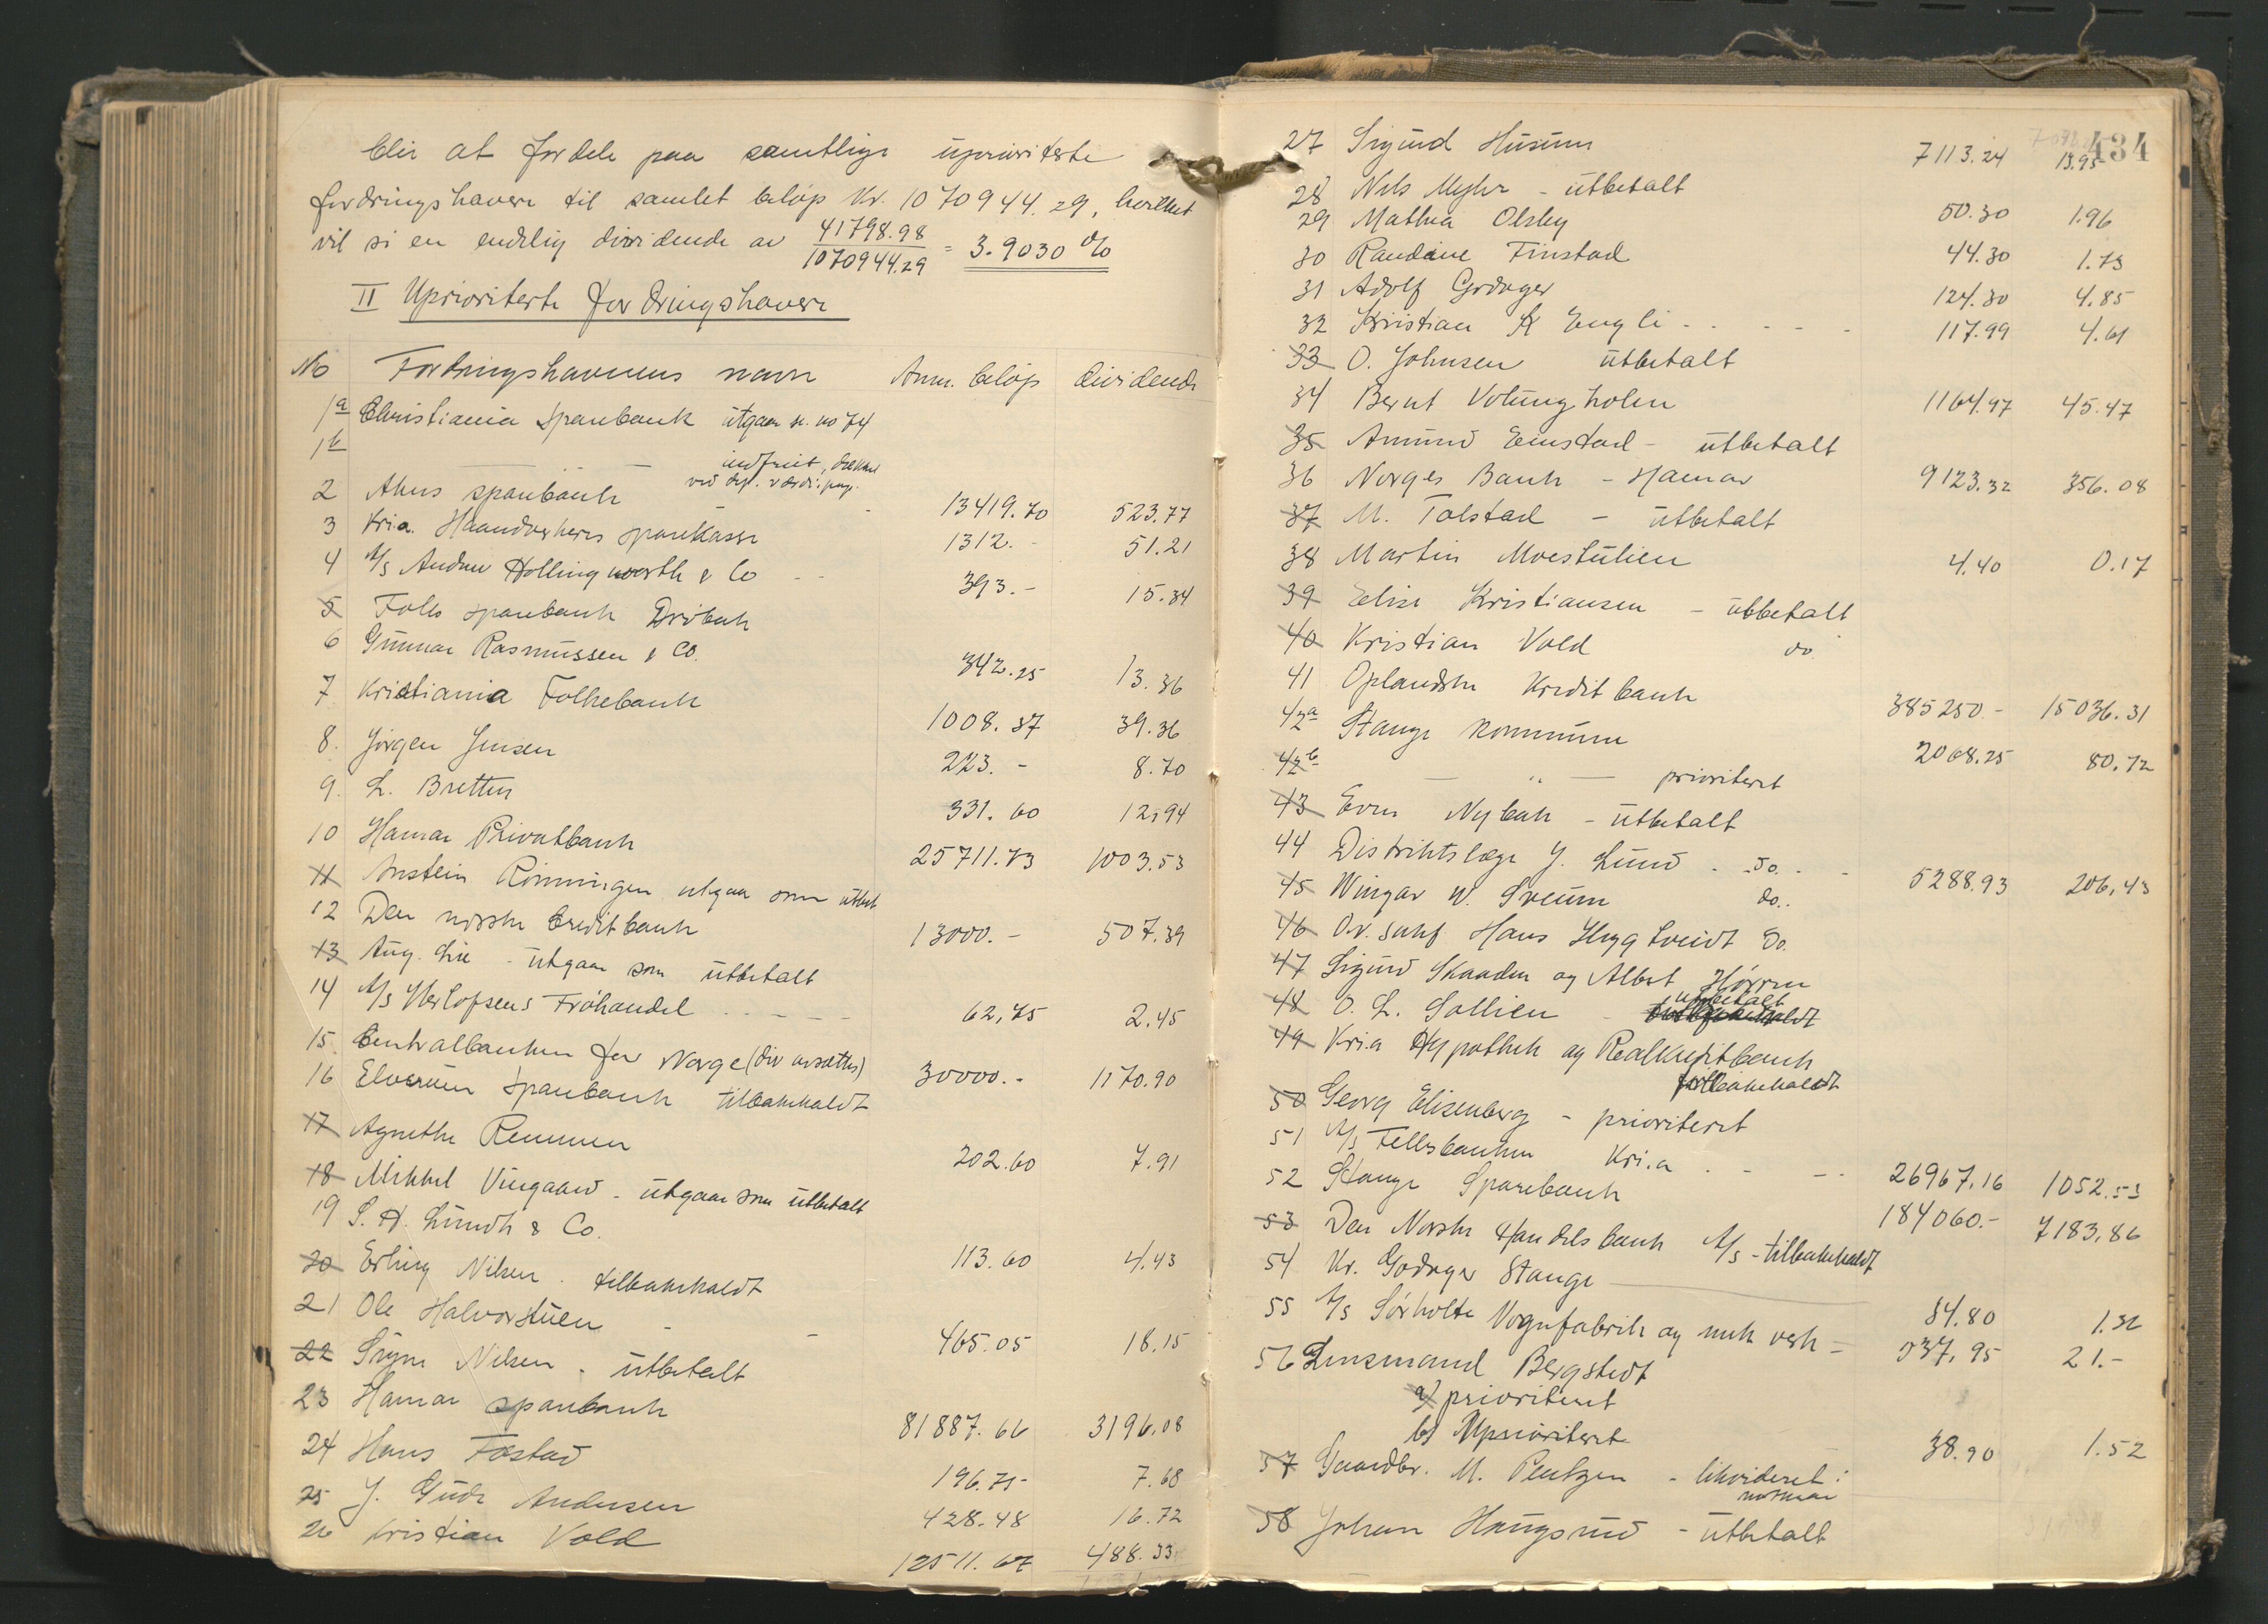 blir at fordele paa samtlige upriviterte
fordringshavere til samlet beløp Kr. 1070944.29, hvilket
vil si en endelig dividende av 41798.98 / 1070944.29 = 3.9030 %
II Uprioriterte fordringshavere
No Fordringshaverens navn Anm. beløp dividende
1a Christiania Sparebank utgaar se no 74
1b — " — indfriet, dækket
ved dep. værdi.pap.
2 Akers sparebank 13419.70 523.77
3 Kria. Haandverkeres sparekasse 1312.- 51.21
4 A/s Andrew Hollingworth & Co 393.- 15.34
5 Follo sparebank Drøbak
6 Gunnar Rasmussen & Co. 342.25 13.36
7 Kristiania Folkebank 1008.37 39.36
8. Jørgen Jensen 223.- 8.70
9. L. Bretten 331.60 12,94
10 Hamar Privatbank 25711.73 1003.53
11 Anstein Rønningen utgaar som utbet
12 Den norske Creditbank 13000.- 507.39
13 Aug. Lie - utgaar som utbetalt
14 A/s Herlofsens Frøhandel 62,75 2.45
15. Centralbanken for Norge (div avsættes) 30000.- 1170.90
16 Elverum Sparebank tilbakekaldt
17 Agnethe Remmen 202.60 7.91
18 Mikkel Vingaard - utgaar som utbetalt
19 S. H. Lundh & Co. 113.60 4.43
20 Erling Nilsen - tilbakekaldt
21 Ole Halvorstuen - - 465.05 18.15
22 Signe Nilsen - utbetalt
23 Hamar sparebank 81887.66 3196.08
24 Hans Fostad 196.75 7.68
25 J. Gude Andersen 428.48 16.72
26 Kristian Vold 12511.67 488.33
434
27 Sigurd Husum 7113.24 13.95
28 Nils Myhr - utbetalt
29 Mathea Olsby 50.30 1.96
30 Randine Finstad 44.30 1.73
31 Adolf Godager 124.30 4.85
32 Kristian K Engli - - - - 117.99 4.61
33 O. Johnsen utbetalt
34 Bernt Votungholen 1164.97 45.47
35 Amund Einstad - utbetalt
36 Norges Bank - Hamar 9123.32 356.08
37 M. Tolstad - utbetalt
38 Martin Moestulien 4.40 0.17
39 Elise Kristiansen - utbetalt
40 Kristian Vold do
41 Oplandske Kreditbank 385250.- 15036.31
42a Stange kommune 2068.25 80.72
42b — " — prioritert
43 Even Nybak - utbetalt
44 Distriktslæge J. Lund - do. - - 5288.93 206,43
45 Wingar W. Sveum do..
46 O.r. sakf. Hans Hygtveidt do.
47 Sigurd Skaaden og Albert Hørren
48 O. L. Sollien - utbetalt
49 Kria Hypothek og Realkreditbank
tilbakekaldt
50 Georg Elisenberg - prioritert
51 A/s Fellesbanken Kri.a - - - - 26967,16 1052.53
52 Stange Sparebank 184060.- 7183,86
53 Den Norske Handelsbank A/s - tilbakekaldt
54 Kr. Godager Stange 34.80 1.36
55 A/s Sørholte Vognfabrik og mek verk - 537,95 21.-
56 Lensmand Bergstedt
a) prioritert
b) Uprioritert 38.90 1.52
57 Gaardbr. M. Pentzen - likvideret i
58 Johan Haugsrud - utbetalt